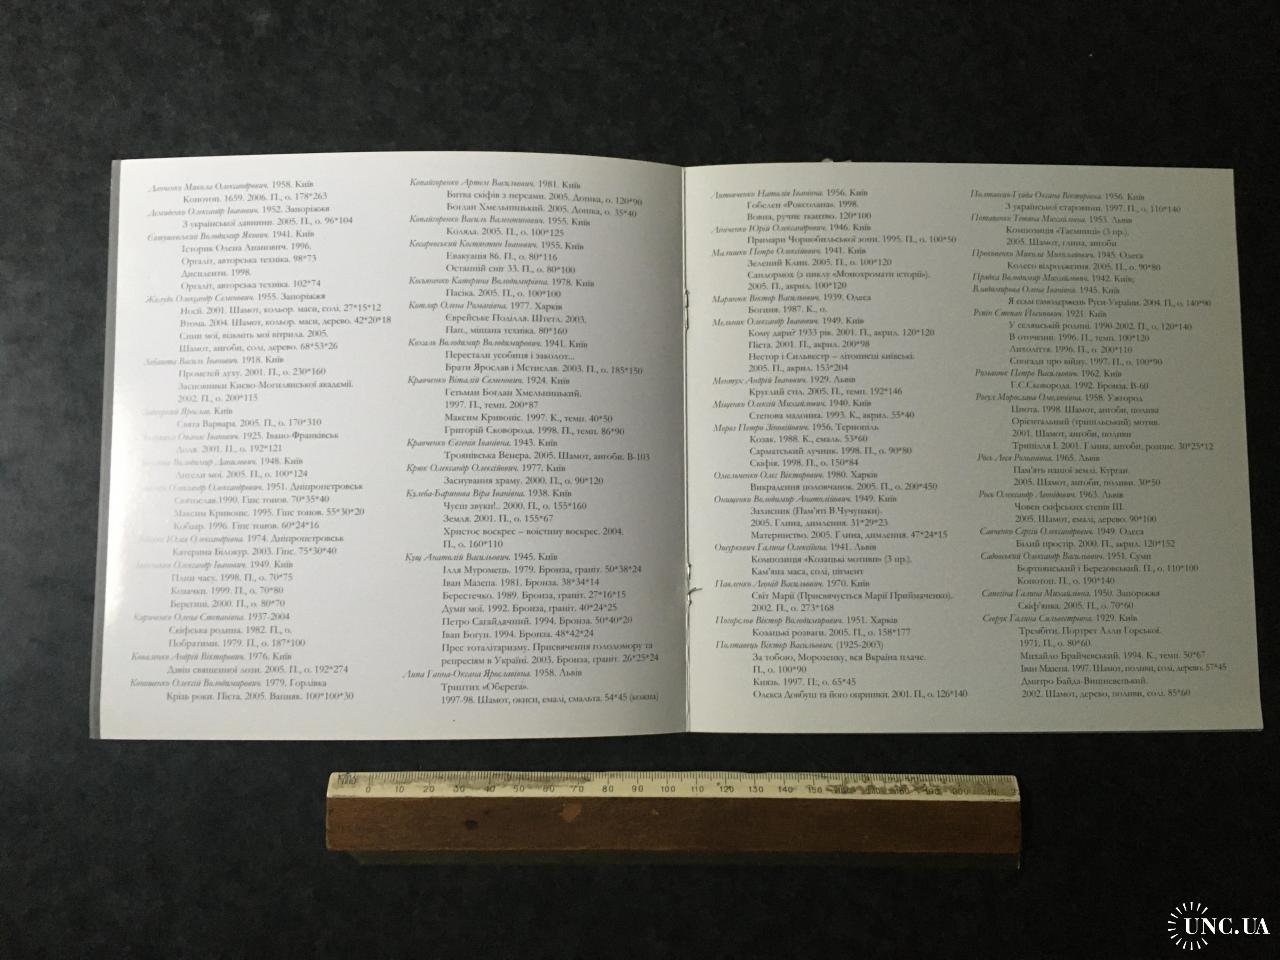 Данченко Микола Олександрович. 1958. Київ
Конотоп. 1659. 2006. П., о. 178*263
Демиденко Олександр Іванович. 1952. Запоріжжя
З української давнини. 2005. П., о. 96*104
Євтушевський Володимир Якович. 1941. Київ
Історик Олена Апанович. 1996.
Оргаліт, авторська техніка. 98*73
Дисиденти. 1998.
Оргаліт, авторська техніка. 102*74
Жолудь Олександр Семенович. 1955. Запоріжжя
Носії. 2001. Шамот, кольор. маси, солі. 27*15*12
Втома. 2004. Шамот, кольор. маси, дерево. 42*20*18
Сини мої, візьміть мої вітрила. 2005.
Шамот, ангоби, солі, дерево. 68*53*26
Забашта Василь Іванович. 1918. Київ
Прометей духу. 2001. П., о. 230*160
Засновники Києво-Могилянської академії.
2002. П., о. 200*115
Ярослав. Київ
Свята Варвара. 2005. П., о. 170*310
Опанас Іванович. 1925. Івано-Франківськ
Доля. 2001. П., о. 192*121
Володимир Данилович. 1948. Київ
Ангели мої. 2005. П., о. 100*124
Олександр Олександрович. 1951. Дніпропетровськ
Святослав.1990. Гіпс тонов. 70*35*40
Максим Кривоніс. 1995. Гіпс тонов. 55*30*20
Кобзар. 1996. Гіпс тонов. 60*24*16
Юлія Олександрівна. 1974. Дніпропетровськ
Катерина Білокур. 2003. Гіпс. 75*30*40
Олександр Іванович. 1949. Київ
Плин часу. 1998. П., о. 70*75
Козачки. 1999. П., о. 70*80
Берегині. 2000. П., о. 80*70
Кириченко Олена Степанівна. 1937-2004
Скіфська родина. 1982. П., о.
Побратими. 1979. П., о. 187*100
Коваленко Андрій Вікторович. 1976. Київ
Дзвін священної лози. 2005. П., о. 192*274
Коношенко Олексій Володимирович. 1979. Горлівка
Крізь роки. Піста. 2005. Вапняк. 100*100*30
Копайгоренко Артем Васильович. 1981. Київ
Битва скіфів з персами. 2005. Дошка, о. 120*90
Богдан Хмельницький. 2005. Дошка, о. 35*40
Копайгоренко Василь Валентинович. 1955. Київ
Коляда. 2005. П., о. 100*125
Косаревський Костянтин Іванович. 1955. Київ
Евакуація 86. П., о. 80*116
Останній сніг 33. П., о. 80*100
Косьяненко Катерина Володимирівна. 1978. Київ
Пасіка. 2005. П., о. 100*100
Котляр Олена Романівна. 1977. Харків
Єврейське Поділля. Штетл. 2003.
Пап., мішана техніка. 80*160
Козаль Володимир Володимирович. 1941. Київ
Перестали усобиця і заколот...
Брати Ярослав і Мстислав. 2003. П., о. 185*150
Кравченко Віталій Семенович. 1924. Київ
Гетьман Богдан Хмельницький.
1997. П., темп. 200*87
Максим Кривоніс. 1997. К., темп. 40*50
Григорій Сковорода. 1998. П., темп. 86*90
Кравченко Євгенія Іванівна. 1943. Київ
Троянівська Венера. 2005. Шамот, ангоби. В-103
Крюк Олександр Олексійович. 1977. Київ
Заснування храму. 2000. П., о. 90*120
Кулеба-Баринова Віра Іванівна. 1938. Київ
Чуєш звуки!.. 2000. П., о. 155*160
Земля. 2001. П., о. 155*67
Христос воскрес – воістину воскрес. 2004.
П., о. 160*110
Кущ Анатолій Васильович. 1945. Київ
Ілля Муромець. 1979. Бронза, граніт. 50*38*24
Іван Мазепа. 1981. Бронза. 38*34*14
Берестечко. 1989. Бронза, граніт. 27*16*15
Думи мої. 1992. Бронза, граніт. 40*24*25
Петро Сагайдачний. 1994. Бронза. 50*40*20
Іван Богун. 1994. Бронза. 48*42*24
Прес тоталітаризму. Присвячення голодомору та
репресіям в Україні. 2003. Бронза, граніт. 26*25*24
Липа Ганна-Оксана Ярославівна. 1958. Львів
Триптих «Оберега».
1997-98. Шамот, окиси, емалі, смальта. 54*45 (кожна)
Литовченко Наталія Іванівна. 1956. Київ
Гобелен «Роксолана». 1998.
Вовна, ручне ткацтво. 120*100
Лінченко Юрій Олександрович. 1946. Київ
Примари Чорнобильської зони. 1995. П., о. 100*50
Малишко Петро Олексійович. 1941. Київ
Зелений Клин. 2005. П., о. 100*120
Сандормох (з циклу «Монохромати історії»).
2005. П., акрил. 100*120
Маринюк Віктор Васильович. 1939. Одеса
Богиня. 1987. К., о.
Мельник Олександр Іванович. 1949. Київ
Кому дари? 1933 рік. 2001. П., акрил. 120*120
Пієта. 2001. П., акрил. 200*98
Нестор і Сильвестр – літописці київські.
2005. П., акрил. 153*204
Ментух Андрій Іванович. 1929. Львів
Круглий стіл. 2005. П., темп. 192*146
Міщенко Олексій Михайлович. 1940. Київ
Степова мадонна. 1993. К., акрил. 55*40
Мороз Петро Зіновійович. 1956. Тернопіль
Козак. 1988. К., емаль. 53*60
Сарматський лучник. 1998. П., о. 90*80
Скіфія. 1998. П., о. 150*84
Омельченко Олег Вікторович. 1980. Харків
Викрадення половчанок. 2005. П., о. 200*450
Онищенко Володимир Анатолійович. 1949. Київ
Захисник (Пам'яті В.Чучупаки).
2005. Глина, димлення. 31*29*23
Материнство. 2005. Глина, димлення. 47*24*15
Ошуркевич Галина Олексіївна. 1941. Львів
Композиція «Козацькі мотиви» (3 пр.).
Кам'яна маса, солі, пігмент
Павленко Леонід Васильович. 1970. Київ
Світ Марії (Присвячується Марії Приймаченко).
2002. П., о. 273*168
Погорєлов Віктор Володимирович. 1951. Харків
Козацькі розваги. 2005. П., о. 158*177
Полтавець Віктор Васильович. (1925-2003)
За тобою, Морозенку, вся Вкраїна плаче.
П., о. 100*90
Князь. 1997. П., о. 65*45
Олекса Довбуш та його опришки. 2001. П., о. 126*140
Полтавець-Гуйда Оксана Вікторівна. 1956. Київ
З української старовини. 1997. П., о. 110*140
Потапенко Тетяна Михайлівна. 1953. Львів
Композиція «Таємниці» (3 пр.).
2005. Шамот, глина, ангоби
Прокопенко Микола Миколайович. 1945. Одеса
Колесо відродження. 2005. П., о. 90*80
Прядка Володимир Михайлович. 1942. Київ;
Владимирова Олена Іванівна. 1945. Київ
Я єсьм самодержець Руси-України. 2004. П., о. 140*90
Рєпін Степан Ількович. 1921. Київ
У селянській родині. 1990-2002. П., о. 120*140
В оточенні. 1996. П., темп. 100*120
Лихоліття. 1996. П., о. 200*110
Спогади про війну. 1997. П., о. 100*90
Романюк Петро Васильович. 1962. Київ
Г.С.Сковорода. 1992. Бронза. В-60
Росул Мирослава Омелянівна. 1958. Ужгород
Цнота. 1998. Шамот, ангоби, полива
Орієнтальний (трипільський) мотив.
2001. Шамот, ангоби, поливи
Трипілля І. 2001. Глина, ангоби, розпис. 30*25*12
Рось Леся Романівна. 1965. Львів
Пам'ять нашої землі. Курган.
2005. Шамот, ангоби, поливи. 30*50
Рось Олександр Леонідович. 1963. Львів
Човен скіфських степів III.
2005. Шамот, емалі, дерево. 90*100
Савченко Сергій Олегович. 1949. Одеса
Білий простір. 2000. П., акрил. 120*152
Садовський Олександр Васильович. 1951. Суми
Бортнянський і Березовський. П., о. 110*100
Конотоп. П., о. 190*140
Сатеїна Галина Михайлівна. 1950. Запоріжжя
Скіф'янка. 2005. П., о. 70*60
Севрук Галина Сильвестрівна. 1929. Київ
Трембіти. Портрет Алли Горської.
1971. П., о. 80*60
Михайло Брайчевський. 1994. К., темп. 50*67
Іван Мазепа. 1997. Шамот, поливи, солі, дерево. 57*45
Дмитро Байда-Вишневецький.
2002. Шамот, дерево, поливи, солі. 85*60
0 10 20 30 40 50 60 70 80 90 100 110 120 130 140 150
UNC.UA